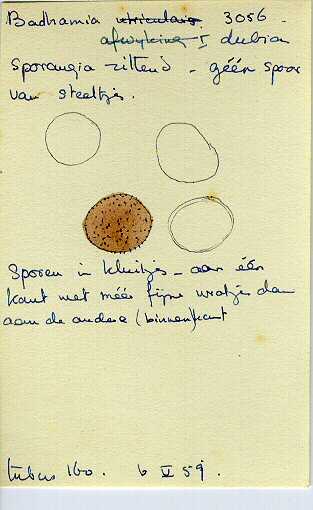 Badhamia utricularis 3056 -
afwijking I dubia
Sporangia zittend - géén spoor
van steeltjes.
Sporen in kluitjes - aan één
kant met méér fijne wratjes dan
aan de andere (binnen)kant
tubus 160. 6 V 59.